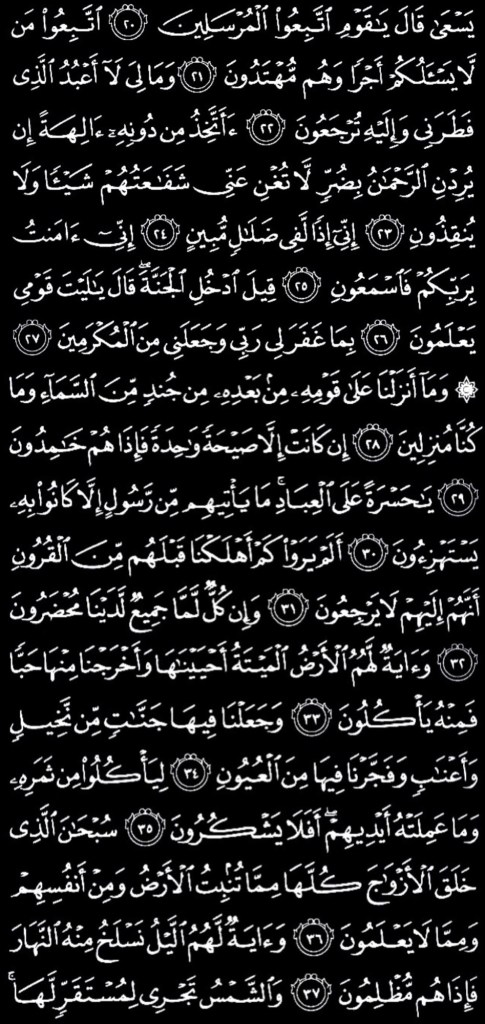 يَسۡعَىٰ قَالَ يَٰقَوۡمِ ٱتَّبِعُواْ ٱلۡمُرۡسَلِينَ ٢٠ ٱتَّبِعُواْ مَن
لَّا يَسۡـَٔلُكُمۡ أَجۡرٗا وَهُم مُّهۡتَدُونَ ٢١ وَمَا لِيَ لَآ أَعۡبُدُ ٱلَّذِي
فَطَرَنِي وَإِلَيۡهِ تُرۡجَعُونَ ٢٢ ءَأَتَّخِذُ مِن دُونِهِۦٓ ءَالِهَةً إِن
يُرِدۡنِ ٱلرَّحۡمَٰنُ بِضُرّٖ لَّا تُغۡنِ عَنِّي شَفَٰعَتُهُمۡ شَيۡـٔٗا وَلَا
يُنقِذُونِ ٢٣ إِنِّيٓ إِذٗا لَّفِي ضَلَٰلٖ مُّبِينٍ ٢٤ إِنِّيٓ ءَامَنتُ
بِرَبِّكُمۡ فَٱسۡمَعُونِ ٢٥ قِيلَ ٱدۡخُلِ ٱلۡجَنَّةَۖ قَالَ يَٰلَيۡتَ قَوۡمِي
يَعۡلَمُونَ ٢٦ بِمَا غَفَرَ لِي رَبِّي وَجَعَلَنِي مِنَ ٱلۡمُكۡرَمِينَ ٢٧
۞ وَمَآ أَنزَلۡنَا عَلَىٰ قَوۡمِهِۦ مِنۢ بَعۡدِهِۦ مِن جُندٖ مِّنَ ٱلسَّمَآءِ وَمَا
كُنَّا مُنزِلِينَ ٢٨ إِن كَانَتۡ إِلَّا صَيۡحَةٗ وَٰحِدَةٗ فَإِذَا هُمۡ خَٰمِدُونَ
٢٩ يَٰحَسۡرَةً عَلَى ٱلۡعِبَادِۚ مَا يَأۡتِيهِم مِّن رَّسُولٍ إِلَّا كَانُواْ بِهِۦ
يَسۡتَهۡزِءُونَ ٣٠ أَلَمۡ يَرَوۡاْ كَمۡ أَهۡلَكۡنَا قَبۡلَهُم مِّنَ ٱلۡقُرُونِ
أَنَّهُمۡ إِلَيۡهِمۡ لَا يَرۡجِعُونَ ٣١ وَإِن كُلّٞ لَّمَّا جَمِيعٞ لَّدَيۡنَا مُحۡضَرُونَ
٣٢ وَءَايَةٞ لَّهُمُ ٱلۡأَرۡضُ ٱلۡمَيۡتَةُ أَحۡيَيۡنَٰهَا وَأَخۡرَجۡنَا مِنۡهَا حَبّٗا
فَمِنۡهُ يَأۡكُلُونَ ٣٣ وَجَعَلۡنَا فِيهَا جَنَّٰتٖ مِّن نَّخِيلٖ
وَأَعۡنَٰبٖ وَفَجَّرۡنَا فِيهَا مِنَ ٱلۡعُيُونِ ٣٤ لِيَأۡكُلُواْ مِن ثَمَرِهِۦ
وَمَا عَمِلَتۡهُ أَيۡدِيهِمۡۖ أَفَلَا يَشۡكُرُونَ ٣٥ سُبۡحَٰنَ ٱلَّذِي
خَلَقَ ٱلۡأَزۡوَٰجَ كُلَّهَا مِمَّا تُنۢبِتُ ٱلۡأَرۡضُ وَمِنۡ أَنفُسِهِمۡ
وَمِمَّا لَا يَعۡلَمُونَ ٣٦ وَءَايَةٞ لَّهُمُ ٱلَّيۡلُ نَسۡلَخُ مِنۡهُ ٱلنَّهَارَ
فَإِذَا هُم مُّظۡلِمُونَ ٣٧ وَٱلشَّمۡسُ تَجۡرِي لِمُسۡتَقَرّٖ لَّهَاۚ